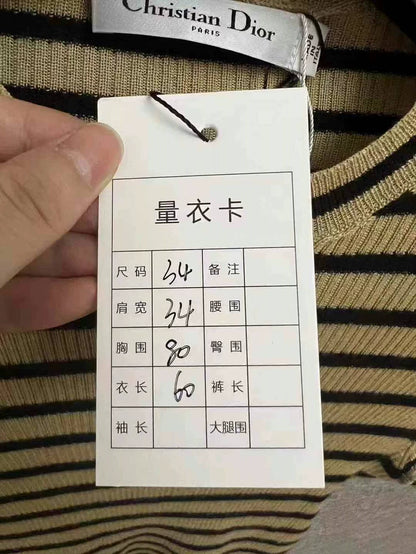 Christian Dior
PARIS
量衣卡
尺码 34 备注
肩宽 34 腰围
胸围 80 臀围
衣长 60 裤长
袖长 大腿围